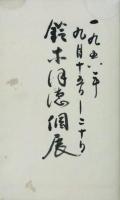 一九五六年
九月十五日―二十日
鈴木
個展